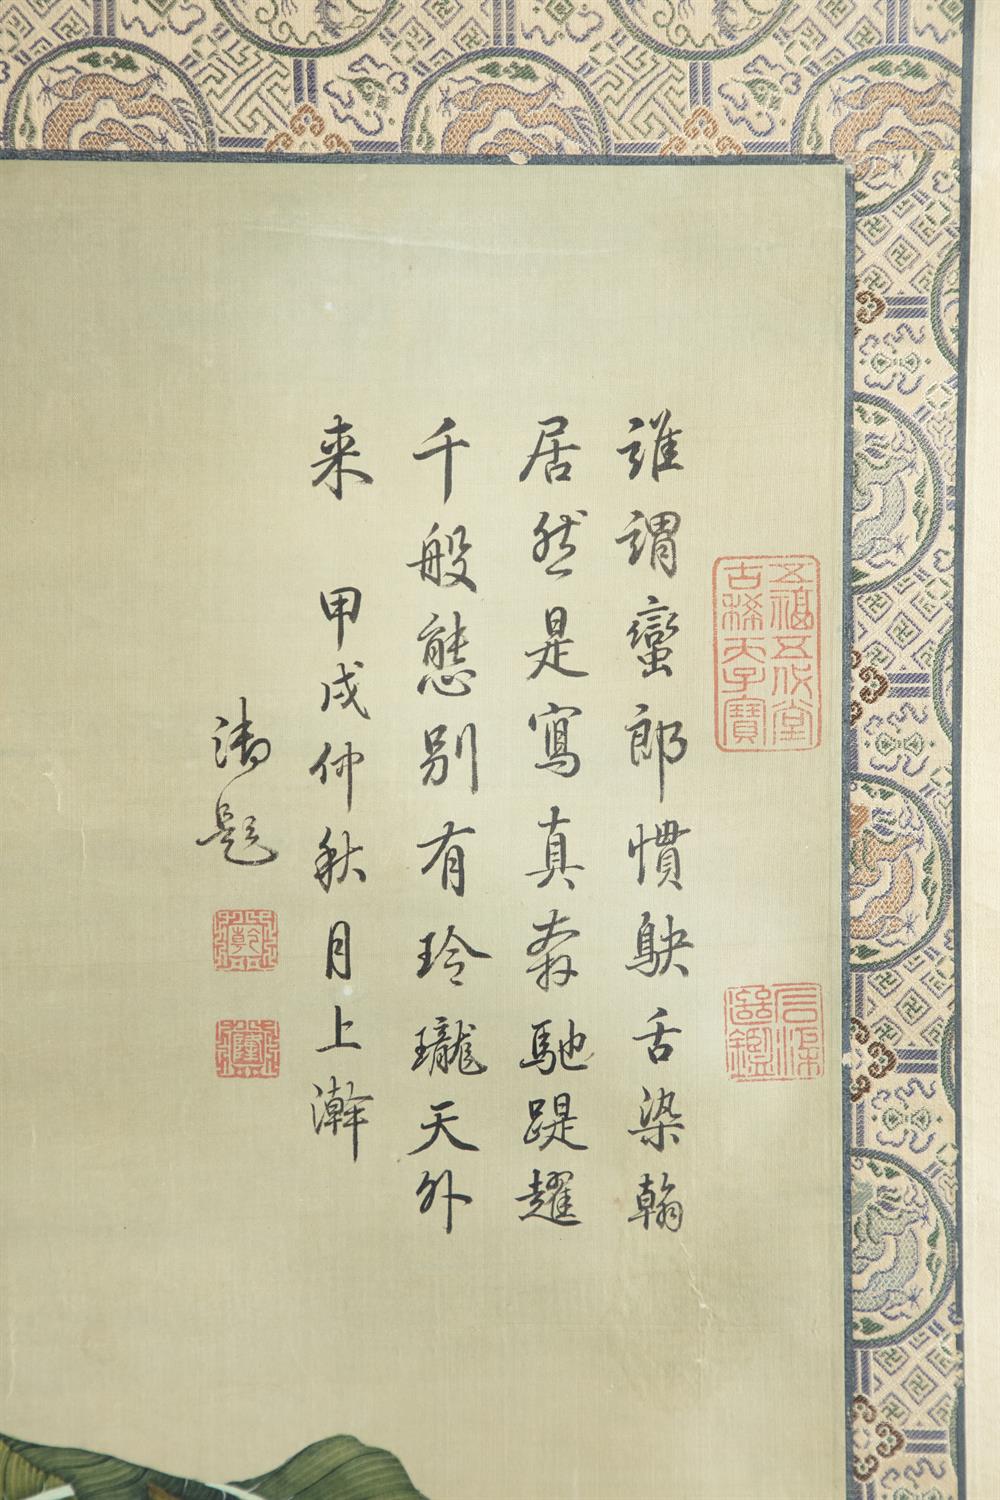 五福五代堂
古稀天子寶
誰謂蠻郎慣駃舌染翰
居然是寫真奔馳踶趯
千般態別有玲瓏天外
来 甲戌仲秋月上澣
御題
乾
隆